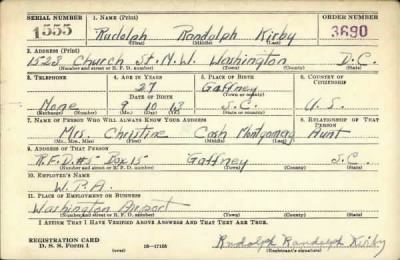 SERIAL NUMBER 1. NAME (Print) ORDER NUMBER
1555 Rudolph Randolph Kirby 3690
(First) (Middle) (Last)
2. ADDRESS (Print)
1528 Church St. N.W. Washington D.C.
(Number and street or R. F. D. number) (Town) (County) (State)
3. TELEPHONE 4. AGE IN YEARS 5. PLACE OF BIRTH 6. COUNTRY OF CITIZENSHIP
27 Gaffney
DATE OF BIRTH (Town or county)
None 9 10 13 S.C. U.S.
(Exchange) (Number) (Mo.) (Day) (Yr.) (State or country)
7. NAME OF PERSON WHO WILL ALWAYS KNOW YOUR ADDRESS 8. RELATIONSHIP OF THAT PERSON
Mrs. Christine Cash Montgomery Aunt
(Mr., Mrs., Miss) (First) (Middle) (Last)
9. ADDRESS OF THAT PERSON
R.F.D. #5 Box 15 Gaffney S.C.
(Number and street or R. F. D. number) (Town) (County) (State)
10. EMPLOYER'S NAME
W.P.A.
11. PLACE OF EMPLOYMENT OR BUSINESS
Washington Airport
(Number and street or R. F. D. number) (Town) (County) (State)
I AFFIRM THAT I HAVE VERIFIED ABOVE ANSWERS AND THAT THEY ARE TRUE.
REGISTRATION CARD
D. S. S. Form 1 (over) 16—17105 Rudolph Randolph Kirby
(Registrant's signature)